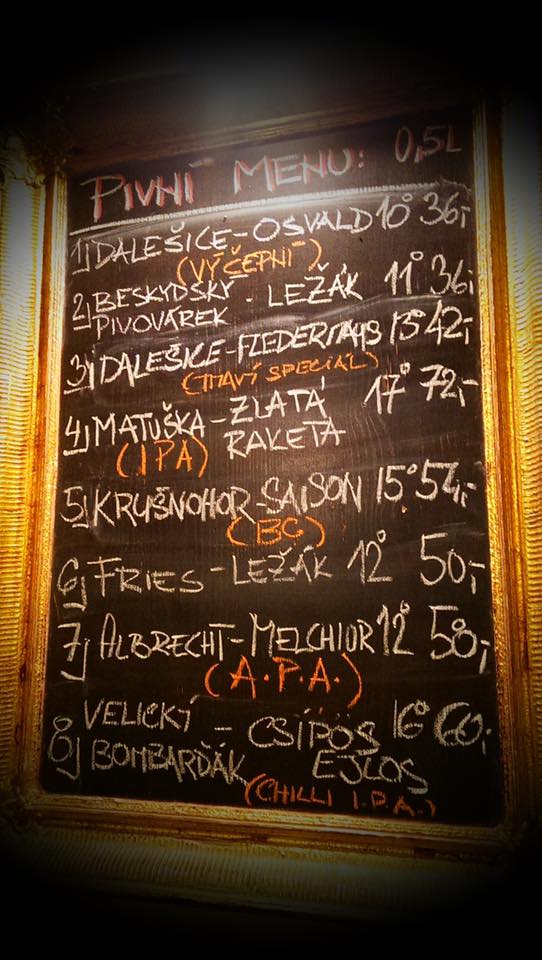 PIVNÍ MENU: 0,5L
1) DALEŠICE-OSVALD 10° 36,-
(VÝČEPNÍ)
2) BESKYDSKÝ PIVOVÁREK - LEŽÁK 11° 36,-
3) DALEŠICE-FLEDERMAUS 15 42,-
(TMAVÝ SPECIÁL)
4) MATUŠKA-ZLATÁ RAKETA 17° 72,-
(IPA)
5) KRUŠNOHOR-SAISON 15° 54,-
6) FRIES-LEŽÁK 12° 50,-
7) ALBRECHT-MELCHIOR 12° 58,-
(A.P.A.)
8) VELICKÝ BOMBARĎÁK - CSÍPÖS EJLOS 16° 60,-
(CHILLI I.P.A.)